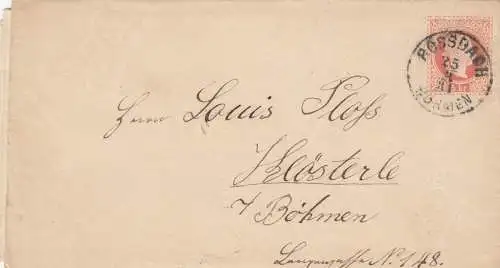 ROSSBACH
25
BÖHMEN
Herrn Louis Ploss
Klösterle
i/ Böhmen
Langegasse No. 148.